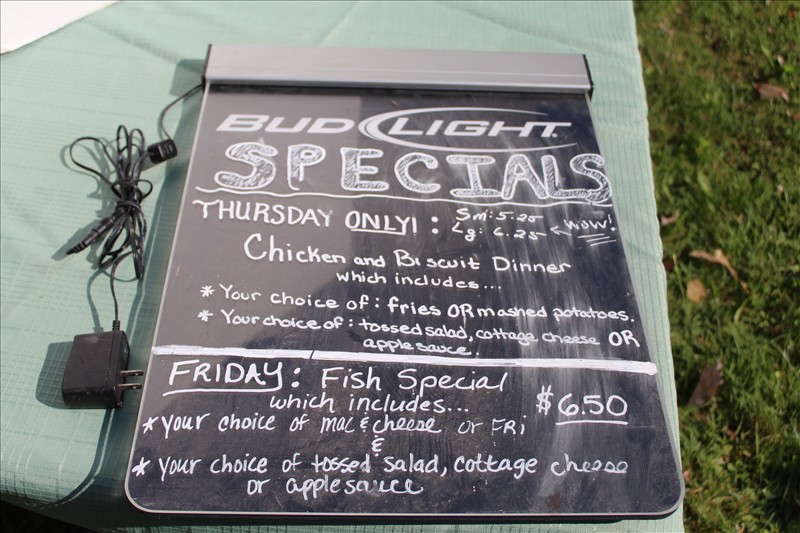 BUD LIGHT
SPECIALS
THURSDAY ONLY! : Sm: 5.25
Lg: 6.25 ← WOW!
Chicken and Biscuit Dinner
which includes...
* Your choice of: fries OR mashed potatoes.
* Your choice of: tossed salad, cottage cheese OR
applesauce.
FRIDAY: Fish Special
which includes... $6.50
* your choice of mac & cheese or FRI
&
* your choice of tossed salad, cottage cheese
or applesauce